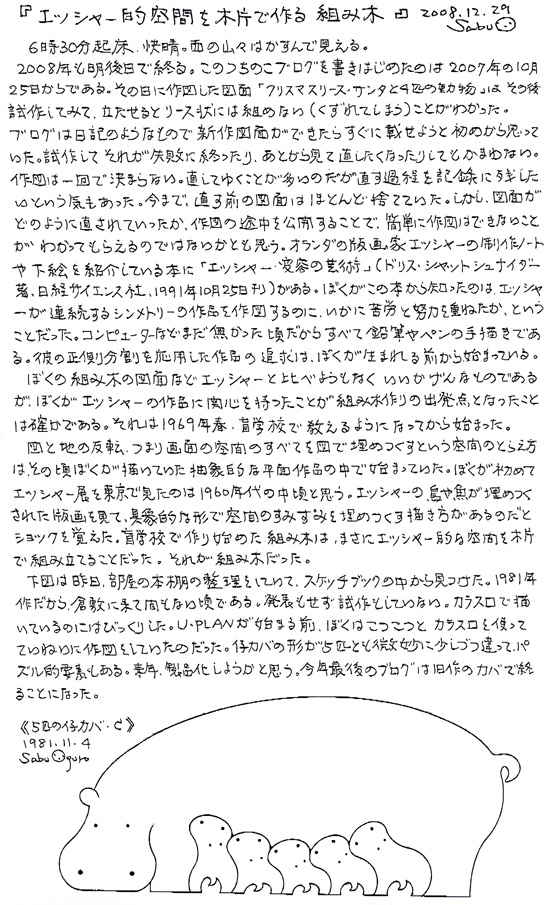 『エッシャー的空間を木片で作る 組み木 』 2008.12.29
Sabu
6時30分起床、快晴。西の山々はかすんで見える。
2008年も明後日で終る。このうちのこブログを書きはじめたのは2007年の10月
25日からである。その日に作図した図面「クリスマスリース・サンタと4匹の動物」は その後
試作してみて、立たせるとリース状には組めない(くずれてしまう)ことがわかった。
ブログは日記のようなもので新作図面ができたらすぐに載せようと初めから思って
いた。試作して それが失敗に終ったり、あとから見て直したくなったりしてもかまわない。
作図は一回で決まらない。直してゆくことが多いのだが直す過程を記録に残した
いという気もあった。今まで、直す前の図面はほとんど捨てていた。しかし、図面が
どのように直されていったか、作図の途中を公開することで、簡単に作図はできないこと
が わかってもらえるのではないかとも思う。オランダの版画家エッシャーの制作ノート
や下絵を紹介している本に「エッシャー・変容の芸術」(ドリス・シャットシュナイダー
著、日経サイエンス社、1991年10月25日刊)がある。ぼくがこの本から知ったのは、エッシャ
ーが連続するシンメトリーの作品を作図するのに、いかに苦労と努力を重ねたか、という
ことだった。コンピューターなどまだ無かった頃だからすべて鉛筆やペンの手描きであ
る。彼の正則分割を応用した作品の追求は、ぼくが生まれる前から始まっている。
ぼくの組み木の図面などエッシャーと比べようもなく いいかげんなものである
が、ぼくがエッシャーの作品に関心を持ったことが組み木作りの出発点となったこと
は確かである。それは1969年春・盲学校で教えるようになってから始まった。
図と地の反転、つまり画面の空間のすべてを図で埋めつくすという空間のとらえ方
はその頃ぼくが描いていた抽象的な平面作品の中で始まっていた。ぼくが初めて
エッシャー展を東京で見たのは1960年代の中頃と思う。エッシャーの鳥や魚が埋めつく
された版画を見て、具象的な形で空間のすみずみを埋めつくす描き方があるのだと
ショックを覚えた。盲学校で作り始めた 組み木は、まさにエッシャー的な空間を木片
で組み立てることだった。それが組み木だった。
下図は昨日、部屋の本棚の整理をしていて、スケッチブックの中から見つけた。1981年
作だから、倉敷に来て間もない頃である。発表もせず試作もしていない。カラスロで描
いているのにはびっくりした。U-PLANが始まる前、ぼくはこつこつと カラスロを使って
ていねいに作図をしていたのだった。仔カバの形が5匹とも微妙に少しづつ違って、パ
ズル的要素もある。来年、製品化しようかと思う。今年最後のブログは旧作のカバで終
ることになった。
《5匹の仔カバ・C》
1981.11.4
Sabu Oguro